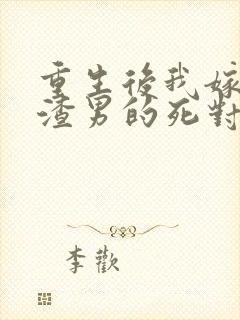 重生後我嫁
渣男的死對
李歡